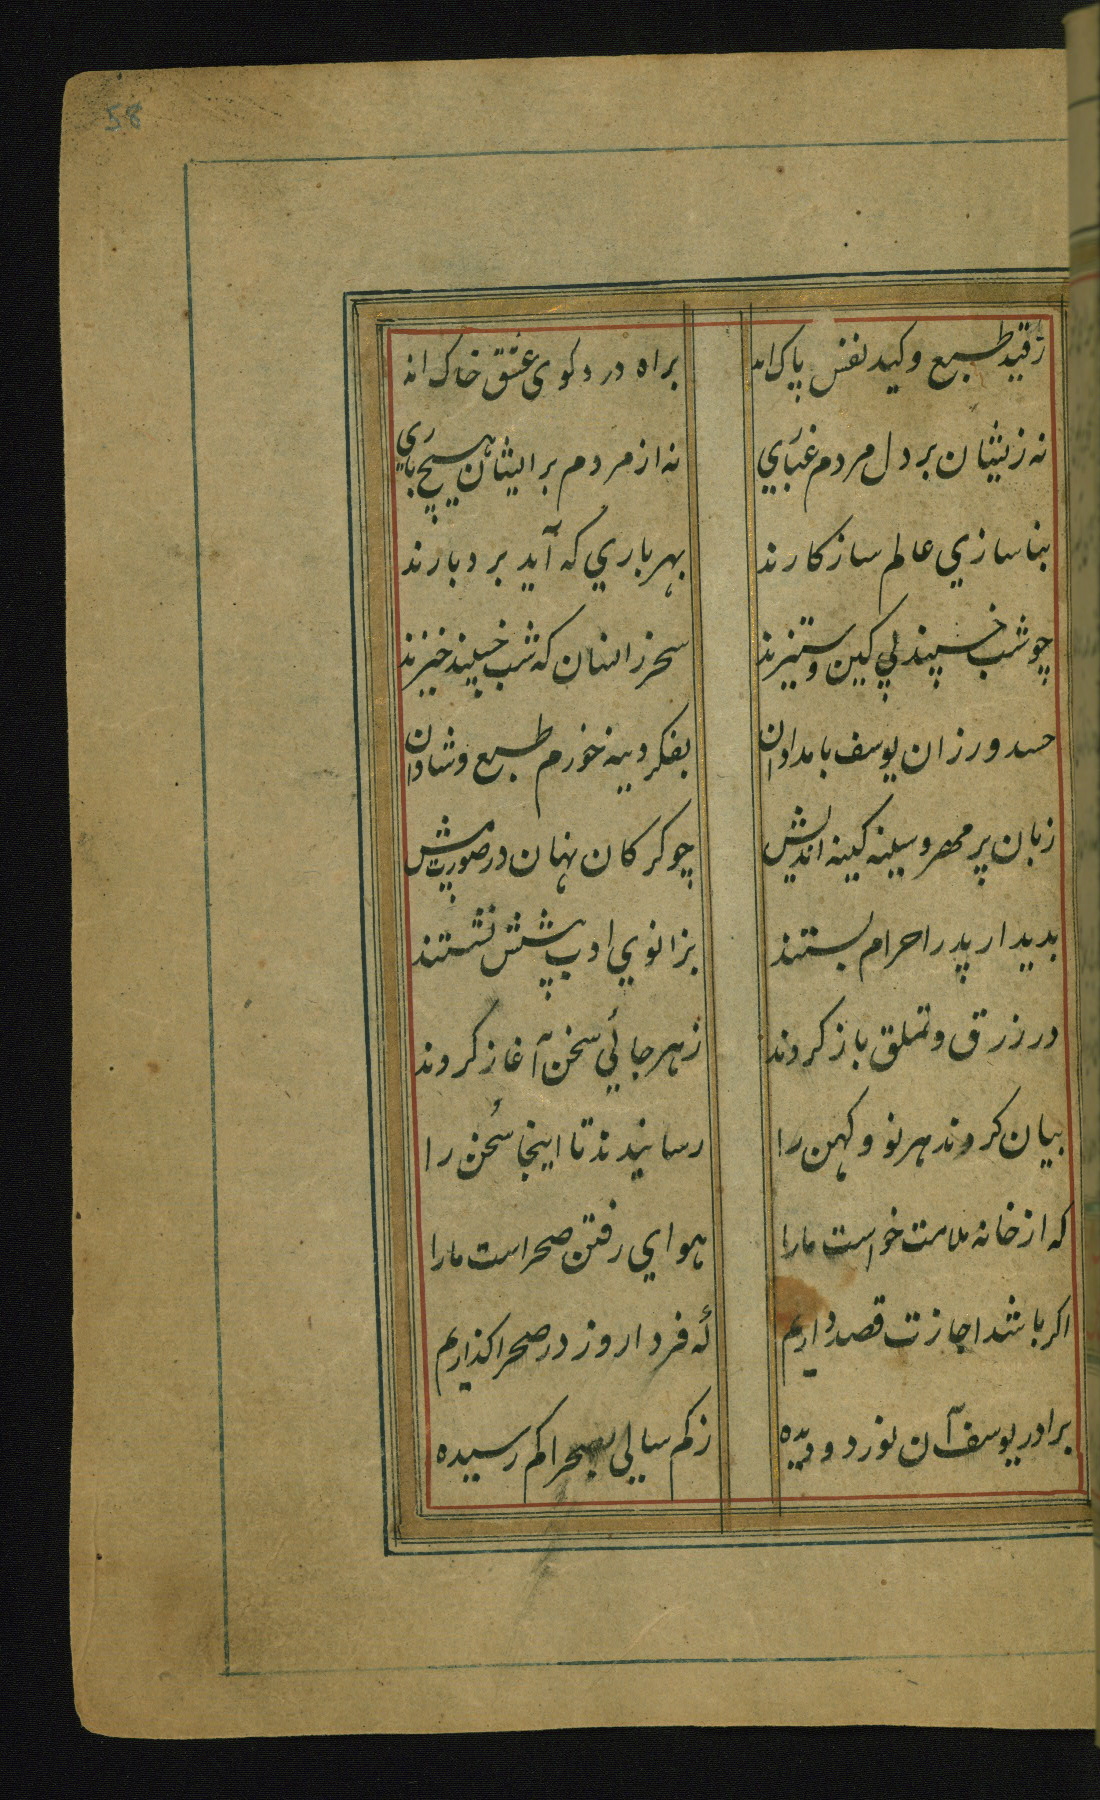 58
زقید طبیع و کید نفس پاک اند براه درد کوی عشق خاک اند
نه زیشان بر دل مردم غباری نه از مردم بر ایشان هیچ باری
بناسازی عالم سازکارند بهر باری که آید بردبارند
چو شب خسپند بی کین و ستیزند سحر زانسان که شب خسپند خیزند
حسد ورزان یوسف بامدادان بفکر دینه خورم طبیع و شادان
زبان پر مهر و سینه کینه اندیش چو کرکان نهان در صورت میش
بدیدار پدر احرام بستند بزانوی ادب پیشش نشستند
در زرق و تملق باز کردند زهر جائی سخن آغاز کردند
بیان کردند هر نو و کهن را رسانیدند تا اینجا سخن را
که از خانه ملامت خواست مارا هوای رفتن صحراست مارا
اکر باشد اجازت قصد داریم که فردا روز در صحرا کذاریم
برادر یوسف آن نور دو دیده زکم سالی بصحرا کم رسیده